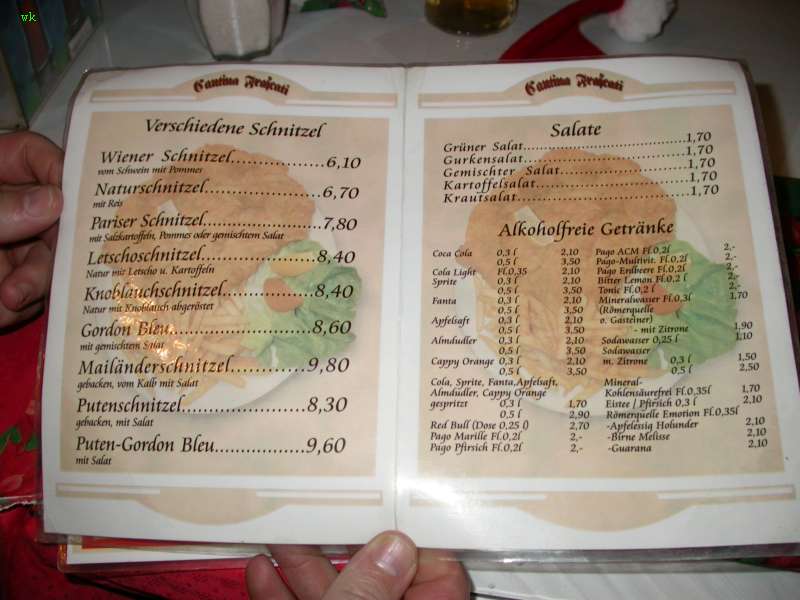 wk
Cantina Frascati
Verschiedene Schnitzel
Wiener Schnitzel..............6,10
vom Schwein mit Pommes
Naturschnitzel..................6,70
mit Reis
Pariser Schnitzel..................7,80
mit Salzkartoffeln, Pommes oder gemischtem Salat
Letschoschnitzel..................8,40
Natur mit Letscho u. Kartoffeln
Knoblauchschnitzel..............8,40
Natur mit Knoblauch abgeröstet
Gordon Bleu......................8,60
mit gemischtem Salat
Mailänderschnitzel............9,80
gebacken, vom Kalb mit Salat
Putenschnitzel....................8,30
gebacken, mit Salat
Puten-Gordon Bleu.................9,60
mit Salat
Cantina Frascati
Salate
Grüner Salat..............................1,70
Gurkensalat..............................1,70
Gemischter Salat......................1,70
Kartoffelsalat..........................1,70
Krautsalat..............................1,70
Alkoholfreie Getränke
Coca Cola 0,3 l 2,10
0,5 l 3,50
Cola Light Fl.0,35 2,10
Sprite 0,3 l 2,10
0,5 l 3,50
Fanta 0,3 l 2,10
0,5 l 3,50
Apfelsaft 0,3 l 2,10
0,5 l 3,50
Almdudler 0,3 l 2,10
0,5 l 3,50
Cappy Orange 0,3 l 2,10
0,5 l 3,50
Cola, Sprite, Fanta,Apfelsaft,
Almdudler, Cappy Orange
gespritzt 0,3 l 1,70
0,5 l 2,90
Red Bull (Dose 0,25 l) 2,70
Pago Marille Fl.0,2l 2,-
Pago Pfirsich Fl.0,2l 2,-
Pago ACM Fl.0,2l 2,-
Pago-Multivit. Fl.0,2l 2,-
Pago Erdbeere Fl.0,2l 2,-
Bitter Lemon Fl.0,2 l 2,-
Tonic Fl.0,2 l 2,-
Mineralwasser Fl.0,3l 1,70
(Römerquelle
o. Gasteiner)
- mit Zitrone 1,90
Sodawasser 0,25 l 1,10
Sodawasser
m. Zitrone 0,3 l 1,50
0,5 l 2,50
Mineral-
Kohlensäurefrei Fl.0,35l 1,70
Eistee / Pfirsich 0,3 l 2,10
Römerquelle Emotion Fl.0,35l
-Apfelessig Holunder 2,10
-Birne Melisse 2,10
-Guarana 2,10